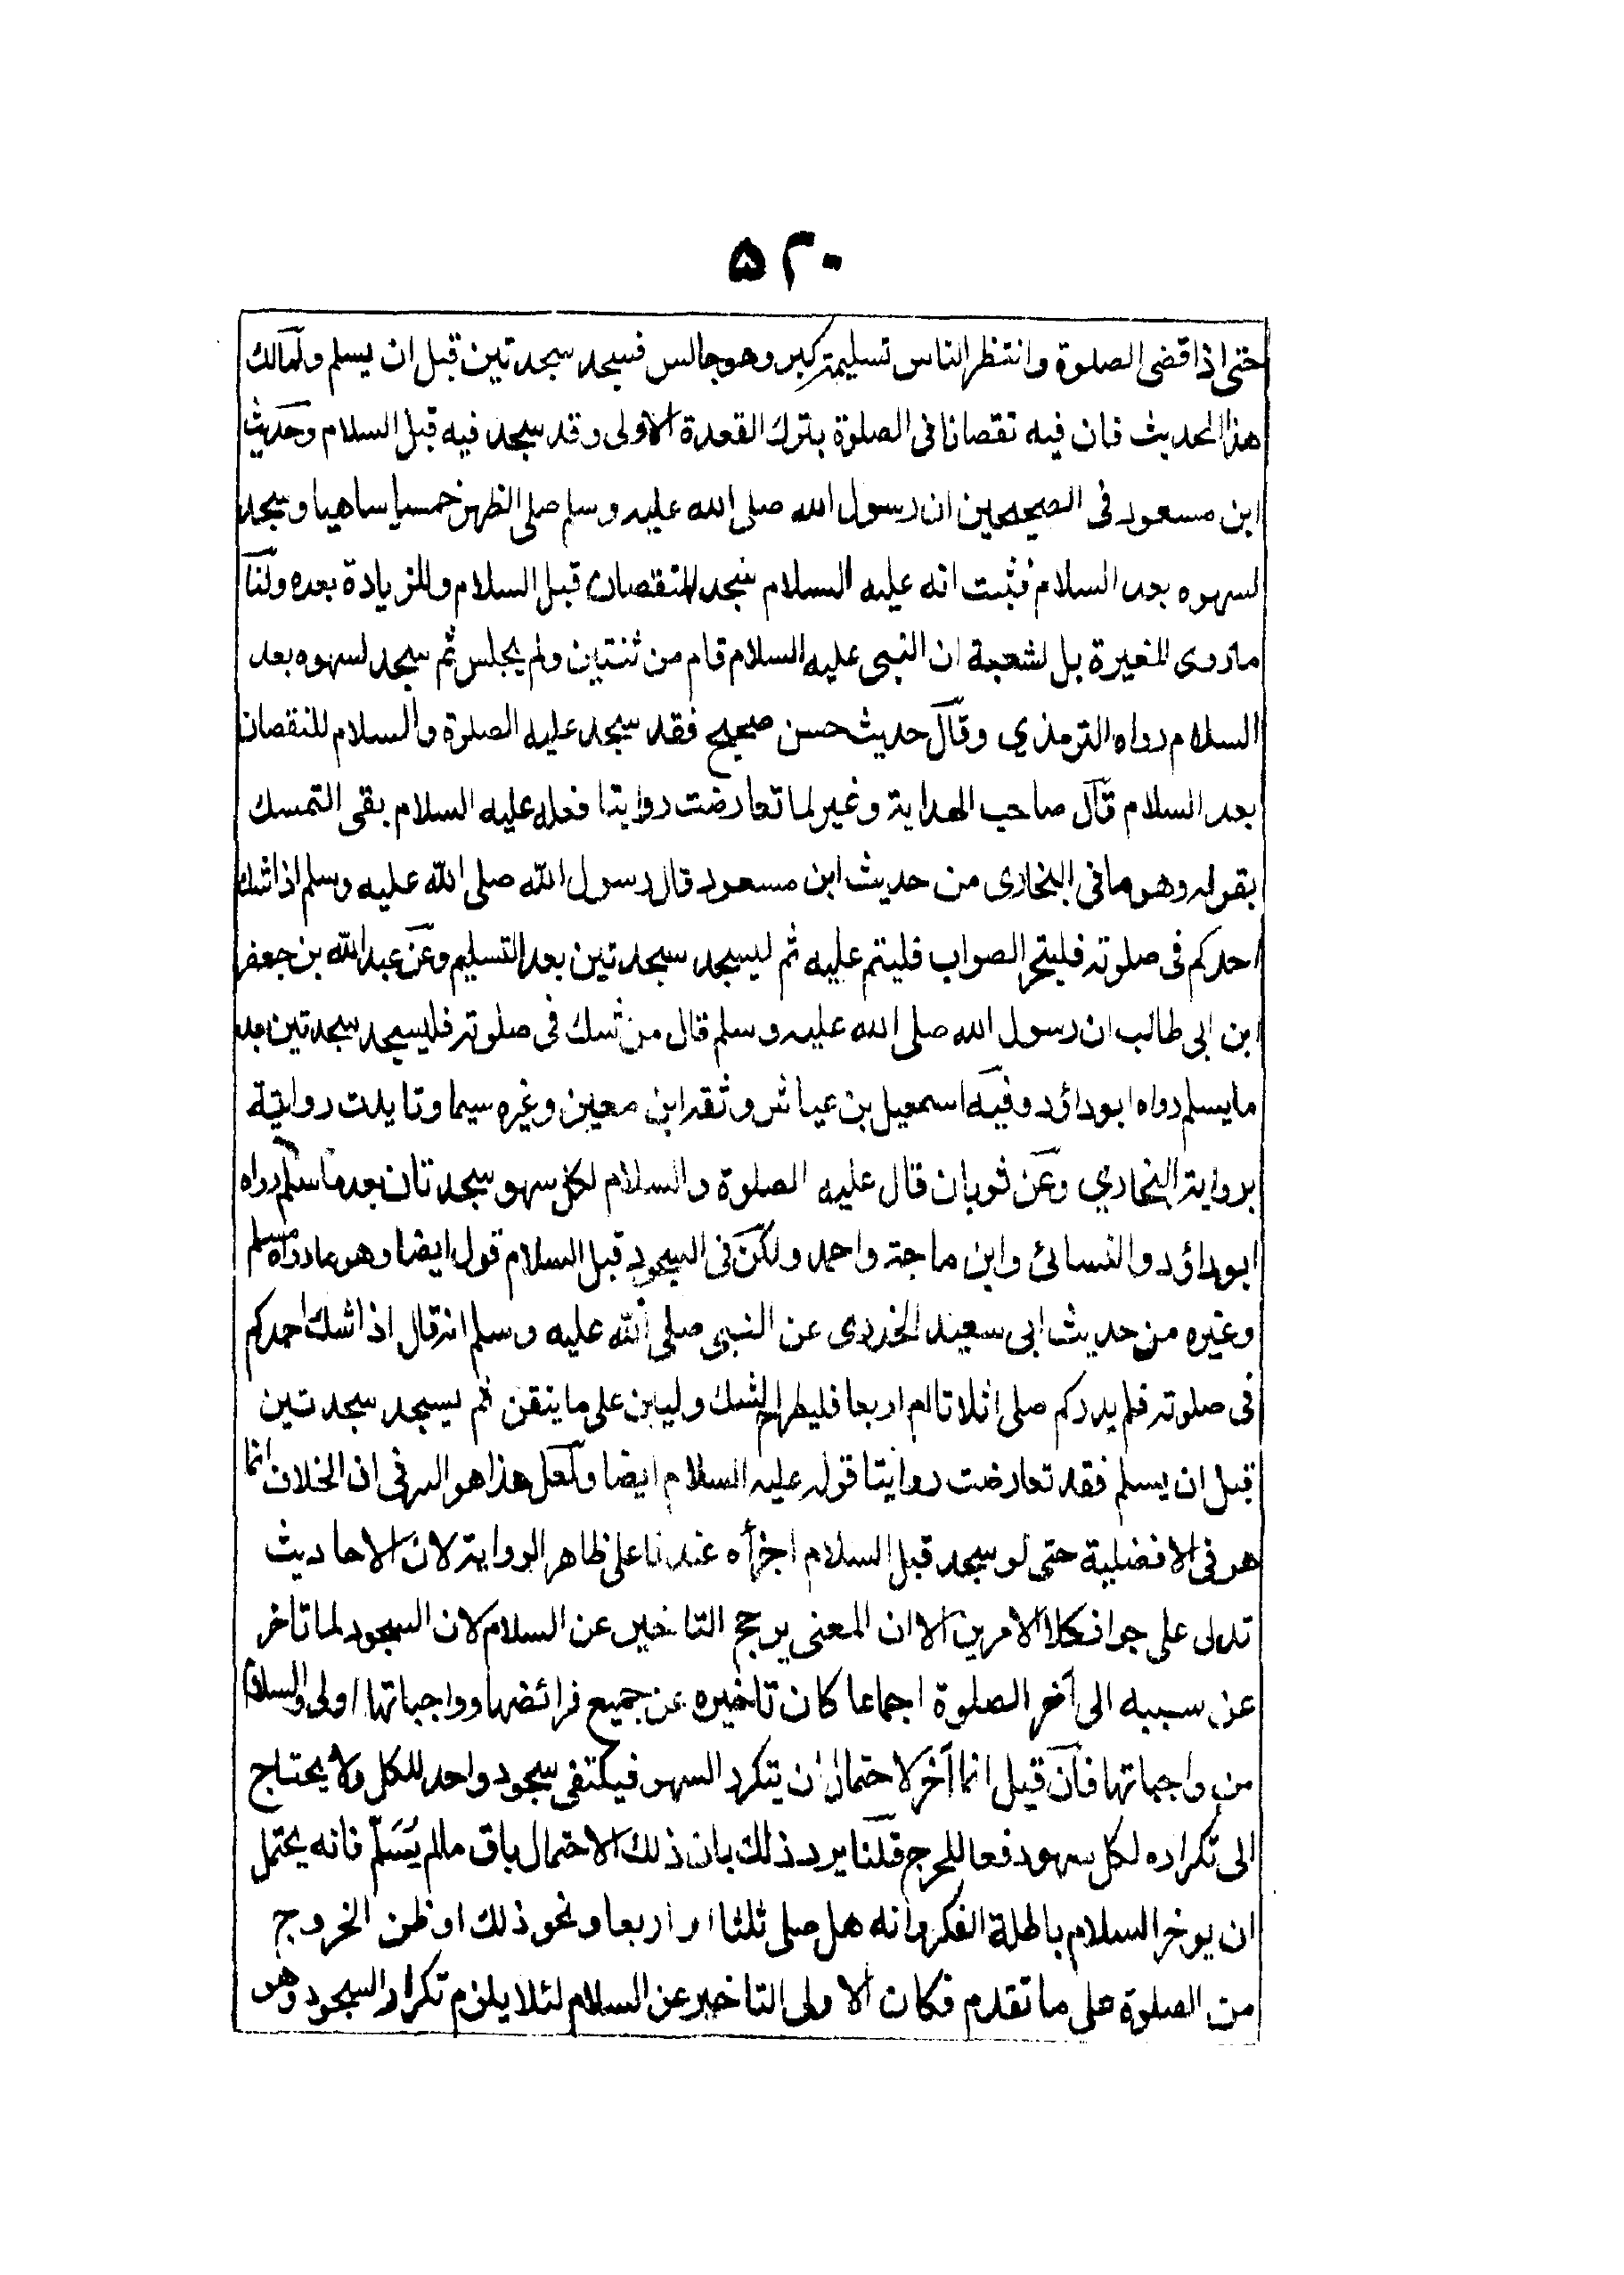 ۵۲۰
حتى اذا قضى الصلوة وانتظر الناس تسليمه كبر وهو جالس فسجد سجدتين قبل ان يسلم ولمالك
هذا الحديث فان فيه نقصانا فى الصلوة بترك القعدة الاولى وقد سجد فيه قبل السلام وحديث
ابن مسعود فى الصحيحين ان رسول الله صلى الله عليه وسلم صلى الظهر خمسا ساهيا وسجد
لسهوه بعد السلام فثبت انه عليه السلام سجد للنقصان قبل السلام وللزيادة بعده ولنا
ما روى المغيرة بن شعبة ان النبى عليه السلام قام من ثنتين ولم يجلس ثم سجد لسهوه بعد
السلام رواه الترمذي وقال حديث حسن صحيح فقد سجد عليه الصلوة والسلام للنقصان
بعد السلام قال صاحب الهداية وغير لما تعارضت روايتا فعله عليه السلام بقى التمسك
بقوله وهو ما فى البخارى من حديث ابن مسعود قال رسول الله صلى الله عليه وسلم اذا شك
احدكم فى صلوته فليتحر الصواب فليتم عليه ثم ليسجد سجدتين بعد التسليم وعن عبد الله بن جعفر
ابن ابى طالب ان رسول الله صلى الله عليه وسلم قال من شك فى صلوته فليسجد سجدتين بعد
ما يسلم رواه ابوداؤد وفيه اسمعيل بن عياش وثقه ابن معين وغيره سيما وتايدت روايته
برواية البخاري وعن ثوبان قال عليه الصلوة والسلام لكل سهو سجدتان بعد ما سلم رواه
ابوداؤد والنسائى وابن ماجة واحمد ولكن فى السجود قبل السلام قول ايضا وهو ما رواه مسلم
وغيره من حديث ابى سعيد الخدرى عن النبى صلى الله عليه وسلم انه قال اذا شك احدكم
فى صلوته فلم يدركم صلى اثلاثا ام اربعا فليطرح الشك وليبن على ما يتقن ثم يسجد سجدتين
قبل ان يسلم فقد تعارضت روايتا قوله عليه السلام ايضا ولعل هذا هو السر فى ان الخلاف انما
هو فى الافضلية حتى لو سجد قبل السلام اجزأه عندنا على ظاهر الرواية لان الاحاديث
تدل على جواز كلا الامرين الا ان المعنى يرجح التاخير عن السلام لان السجود لما تاخر
عن سببه الى آخر الصلوة اجماعا كان تاخيره عن جميع فرائضها وواجباتها اولى والسلام
من واجباتها فان قيل انما آخر لاحتمال ان يتكرر السهو فيكتفى بسجود واحد للكل ولا يحتاج
الى تكراره لكل سهو دفعا للحرج قلنا يرد ذلك بان ذلك الاحتمال باق مالم يسلم فانه يحتمل
ان يوخر السلام باطلة الفكر وانه هل صلى ثلثا او اربعا ونحو ذلك او ظن الخروج
من الصلوة على ما تقدم فكان الاولى التاخير عن السلام لئلا يلزم تكرار السجود وهو